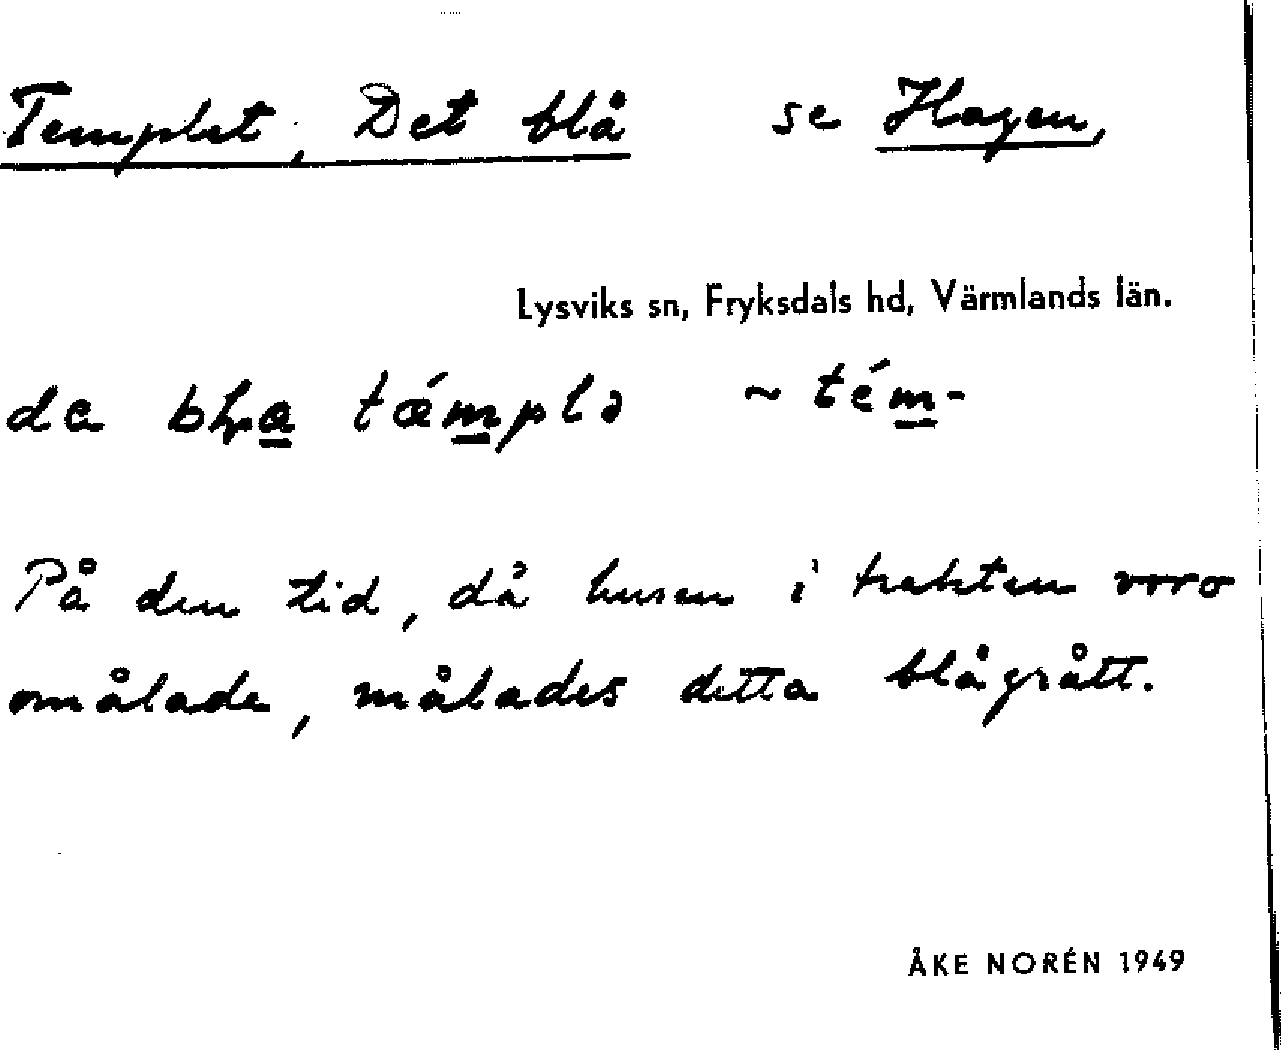 Templet, Det blå se Hagen,
Lysviks sn, Fryksdals hd, Värmlands län.
de tǽmplə ~ tém-
På den tid, då husen i trakten voro
omålade, målades detta blågrått.
ÅKE NORÉN 1949